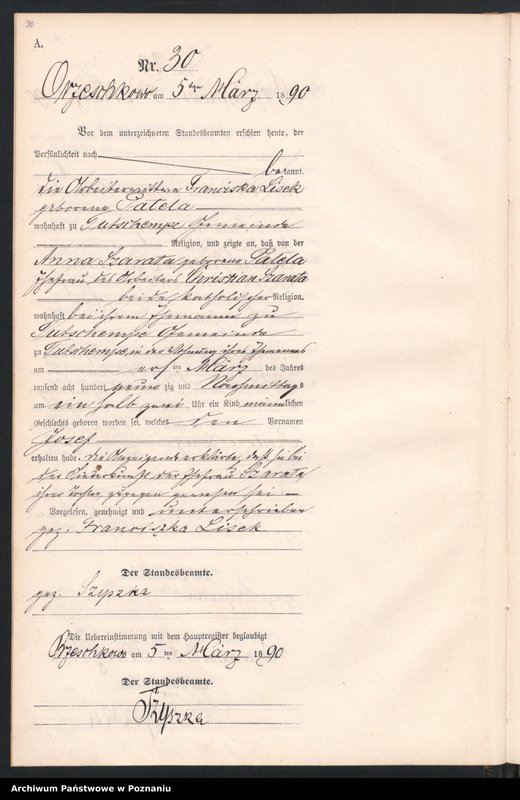 30
A.
Nr. 30
Orzeschkowo am 5ten März 1890
Vor dem unterzeichneten Standesbeamten erschien heute, der
Persönlichkeit nach
bekannt,
die Arbeiterwittwe Franciska Lisek
geborene Patela
wohnhaft zu Gutschempe Gemeinde
Religion, und zeigte an, daß von der
Anna Szarata, geborene Patela
Ehefrau des Arbeiters Christian Szarata
beide katholischer Religion,
wohnhaft bei ihrem Ehemanne zu
Gutschempe Gemeinde
zu Gutschempe, in der Wohnung ihres Ehemannes
am ersten März des Jahres
tausend acht hundert neun zig und Nachmittags
um ein halb zwei Uhr ein Kind männlichen
Geschlechts geboren worden sei, welches den Vornamen
Josef
erhalten habe. Die Anzeigende erklärte, daß sie bei
der Niederkunft der Ehefrau Szarata
ihrer Tochter zugegen gewesen sei.
Vorgelesen, genehmigt und unterschrieben
gez. Franciszka Lisek
Der Standesbeamte.
gez. Szyszka
Die Uebereinstimmung mit dem Hauptregister beglaubigt
Orzeschkowo am 5ten März 1890
Der Standesbeamte.
Szyszka
Archiwum Państwowe w Poznaniu